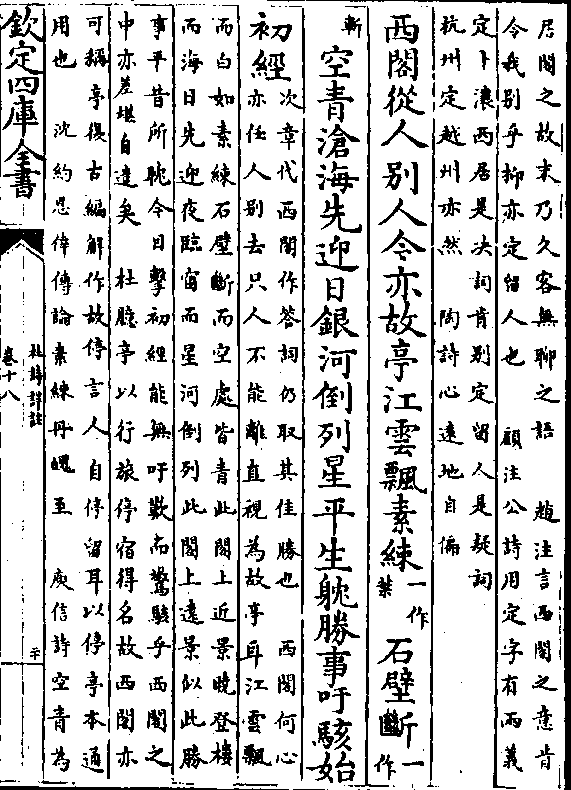 居閣之故末乃久客無聊之語　趙注言西閣之意肯
令我别乎抑亦定留人也　顧注公詩用定字有兩義
定卜瀼西居是决詞肯别定留人是疑詞
杭州定越州亦然　陶詩心遠地自偏
西閣從人别人今亦故亭江雲飄素練一作葉石壁斷一作
斬空青滄海先迎日銀河倒列星平生躭勝事吁駭始
初經
次章代西閣作答詞仍取其佳勝也　西閣何心
亦任人别去只人不能離直視為故亭耳江雲飄
而白如素練石壁斷而空處皆青此閣上近景曉登樓
而海日先迎夜臨窗而星河倒列此閣上遠景似此勝
事平昔所躭今日擊初經能無吁歎而驚駭乎西閣之
中亦差堪自達矣　杜臆亭以行旅停宿得名故西閣亦
可稱亭復古編解作故停言人自停留耳以停亭本通
用也　沈約恩倖傳論素練丹魄至　庾信詩空青為
欽定四庫全書
杜詩詳註
卷十八
二十